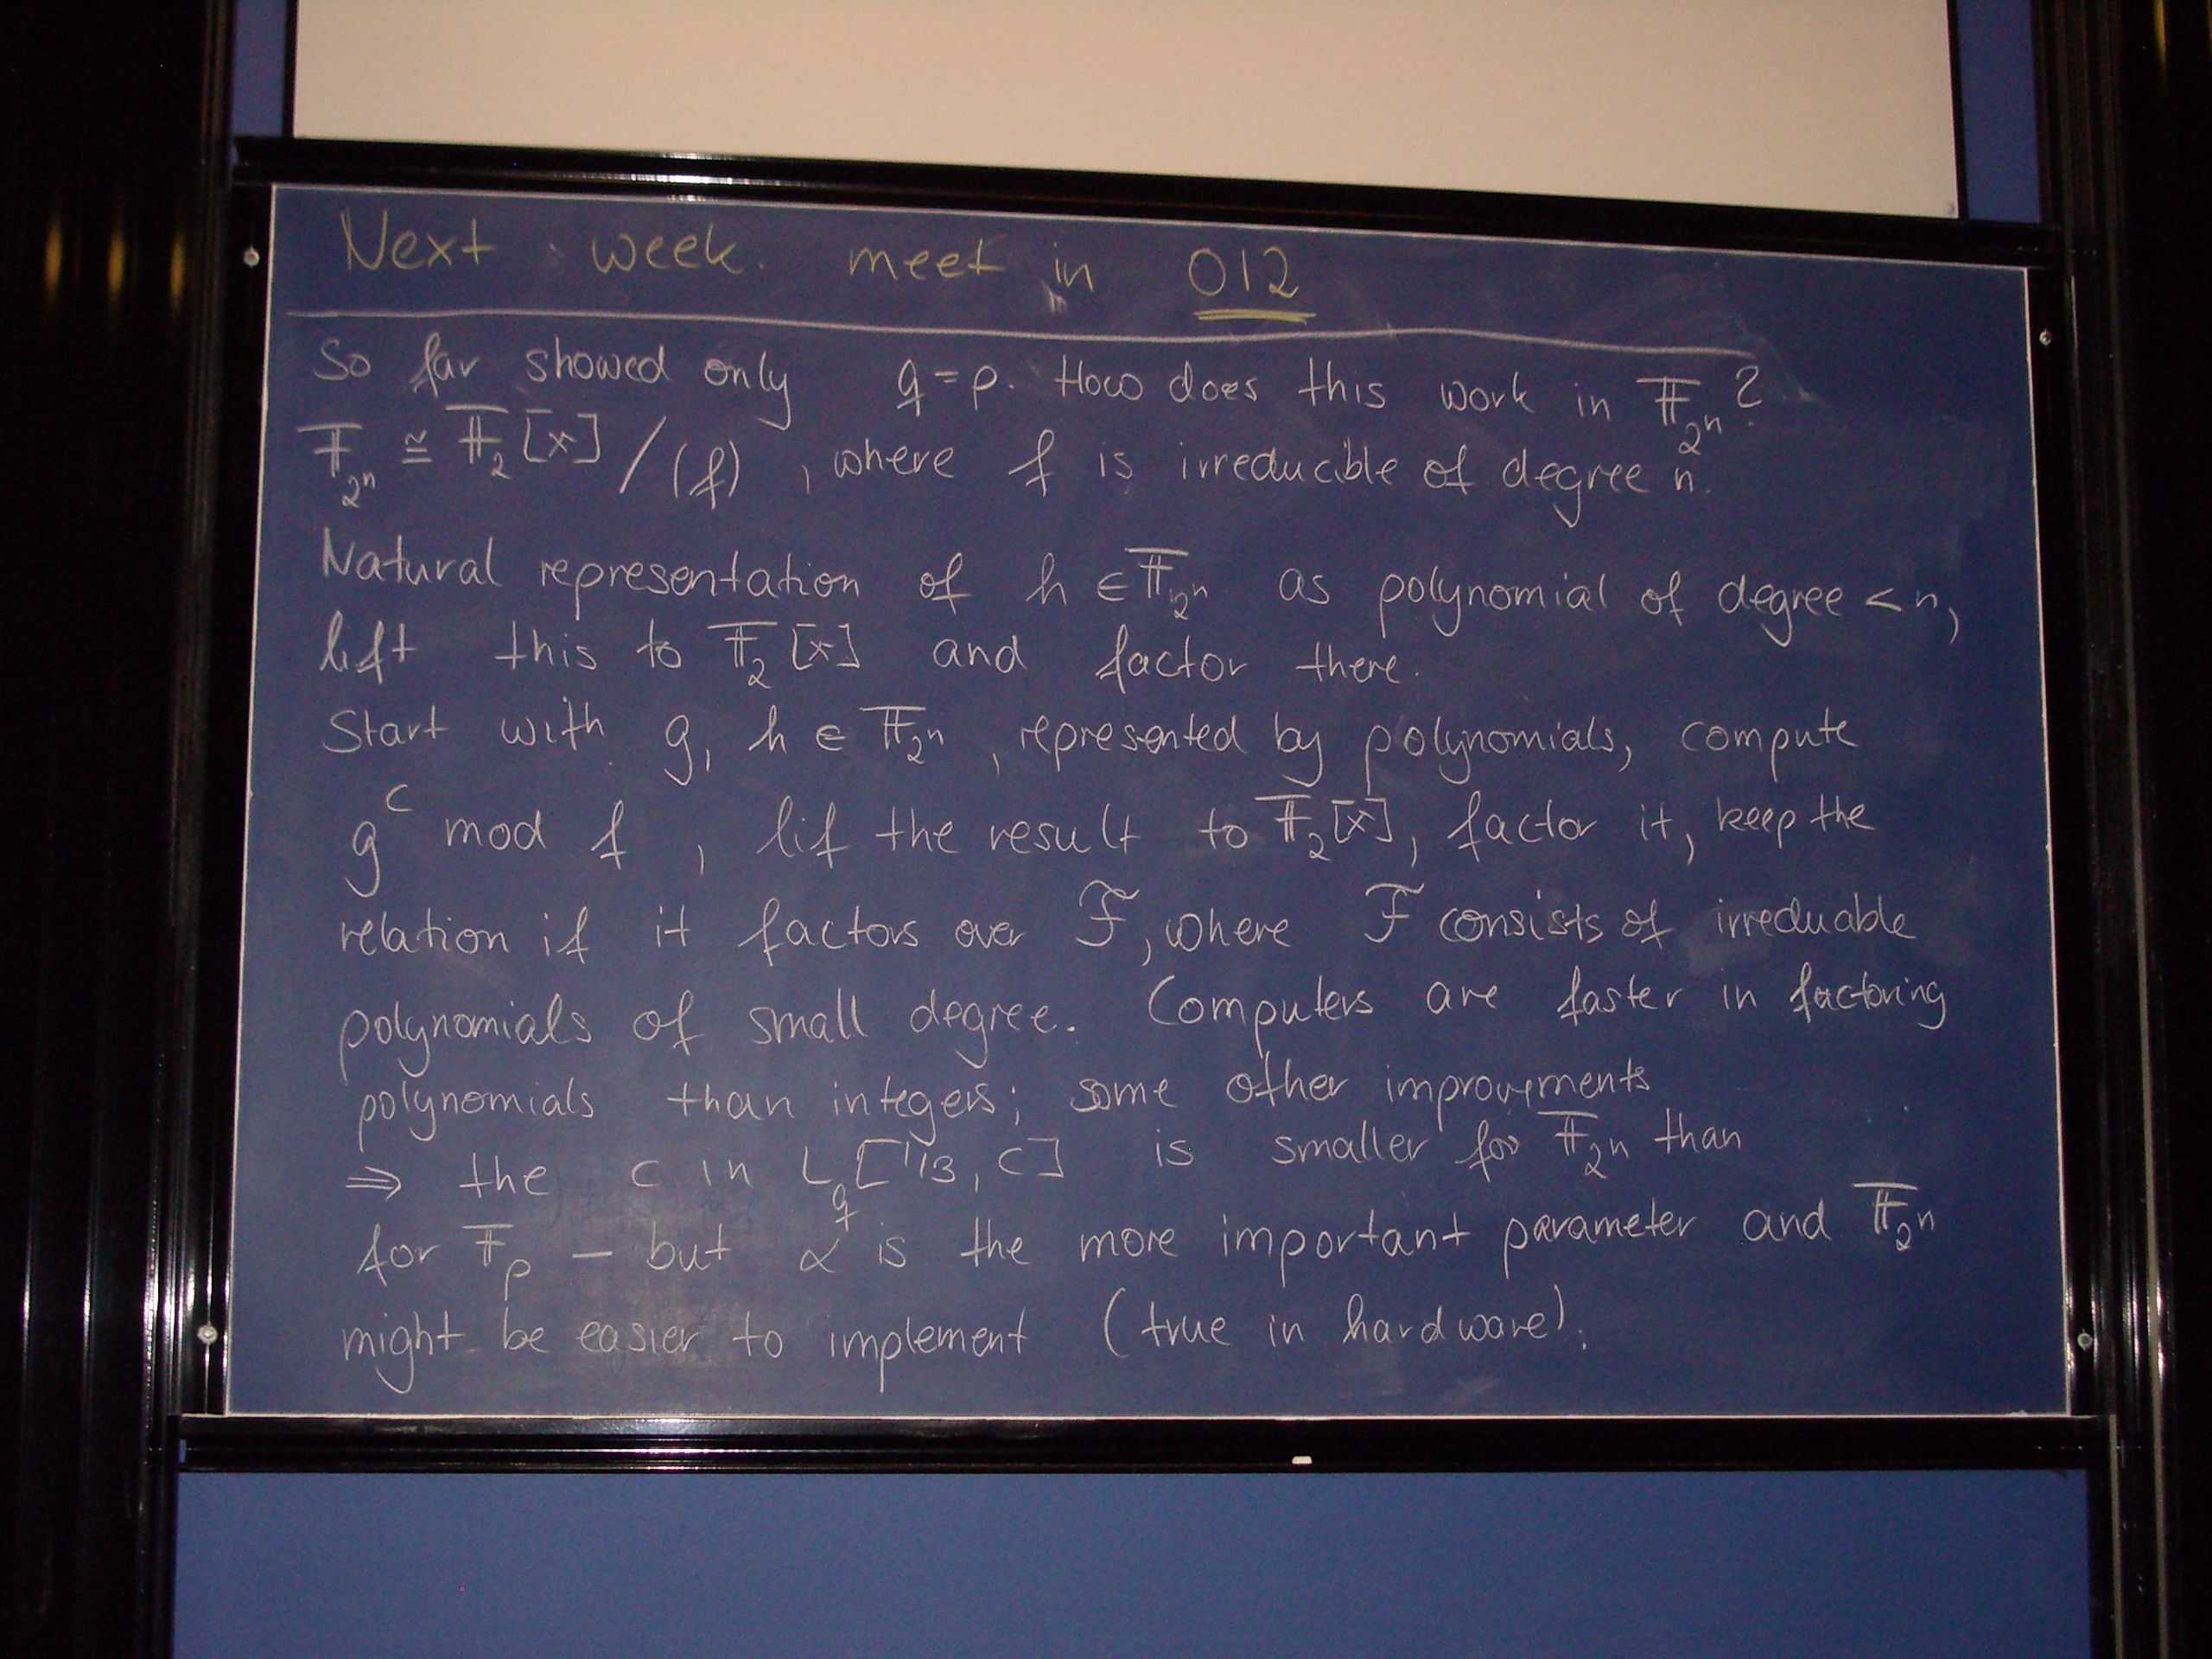 Next week meet in 012
So far showed only q=p. How does this work in 𝔽_{2^n}?
𝔽_{2^n} ≅ 𝔽_2[x]/(f), where f is irreducible of degree n.
Natural representation of h ∈ 𝔽_{2^n} as polynomial of degree < n,
lift this to 𝔽_2[x] and factor there.
Start with g, h ∈ 𝔽_{2^n}, represented by polynomials, compute
g^c mod f, lif the result to 𝔽_2[x], factor it, keep the
relation if it factors over ℱ, where ℱ consists of irreducible
polynomials of small degree. Computers are faster in factoring
polynomials than integers; some other improvements
⇒ the c in L_q[1/3, c] is smaller for 𝔽_{2^n} than
for 𝔽_p – but α is the more important parameter and 𝔽_{2^n}
might be easier to implement (true in hardware).